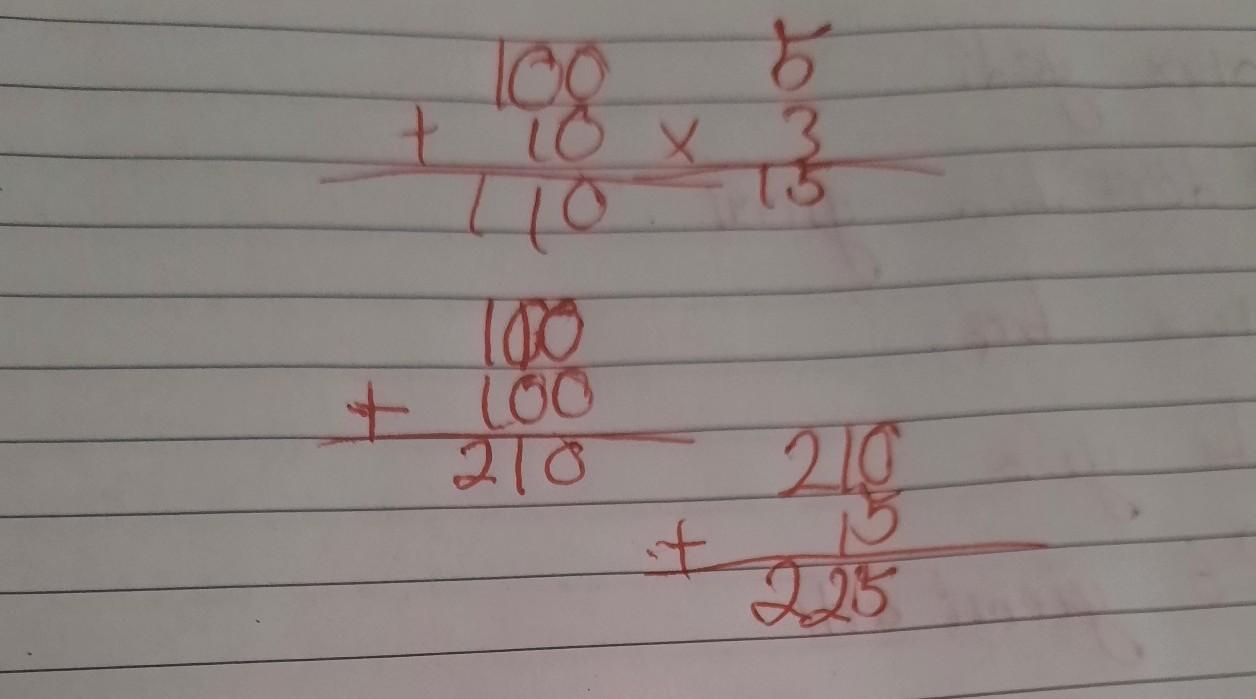 100 5
+ 10 x 3
110 15
100
+ 100
210
210
+ 15
225